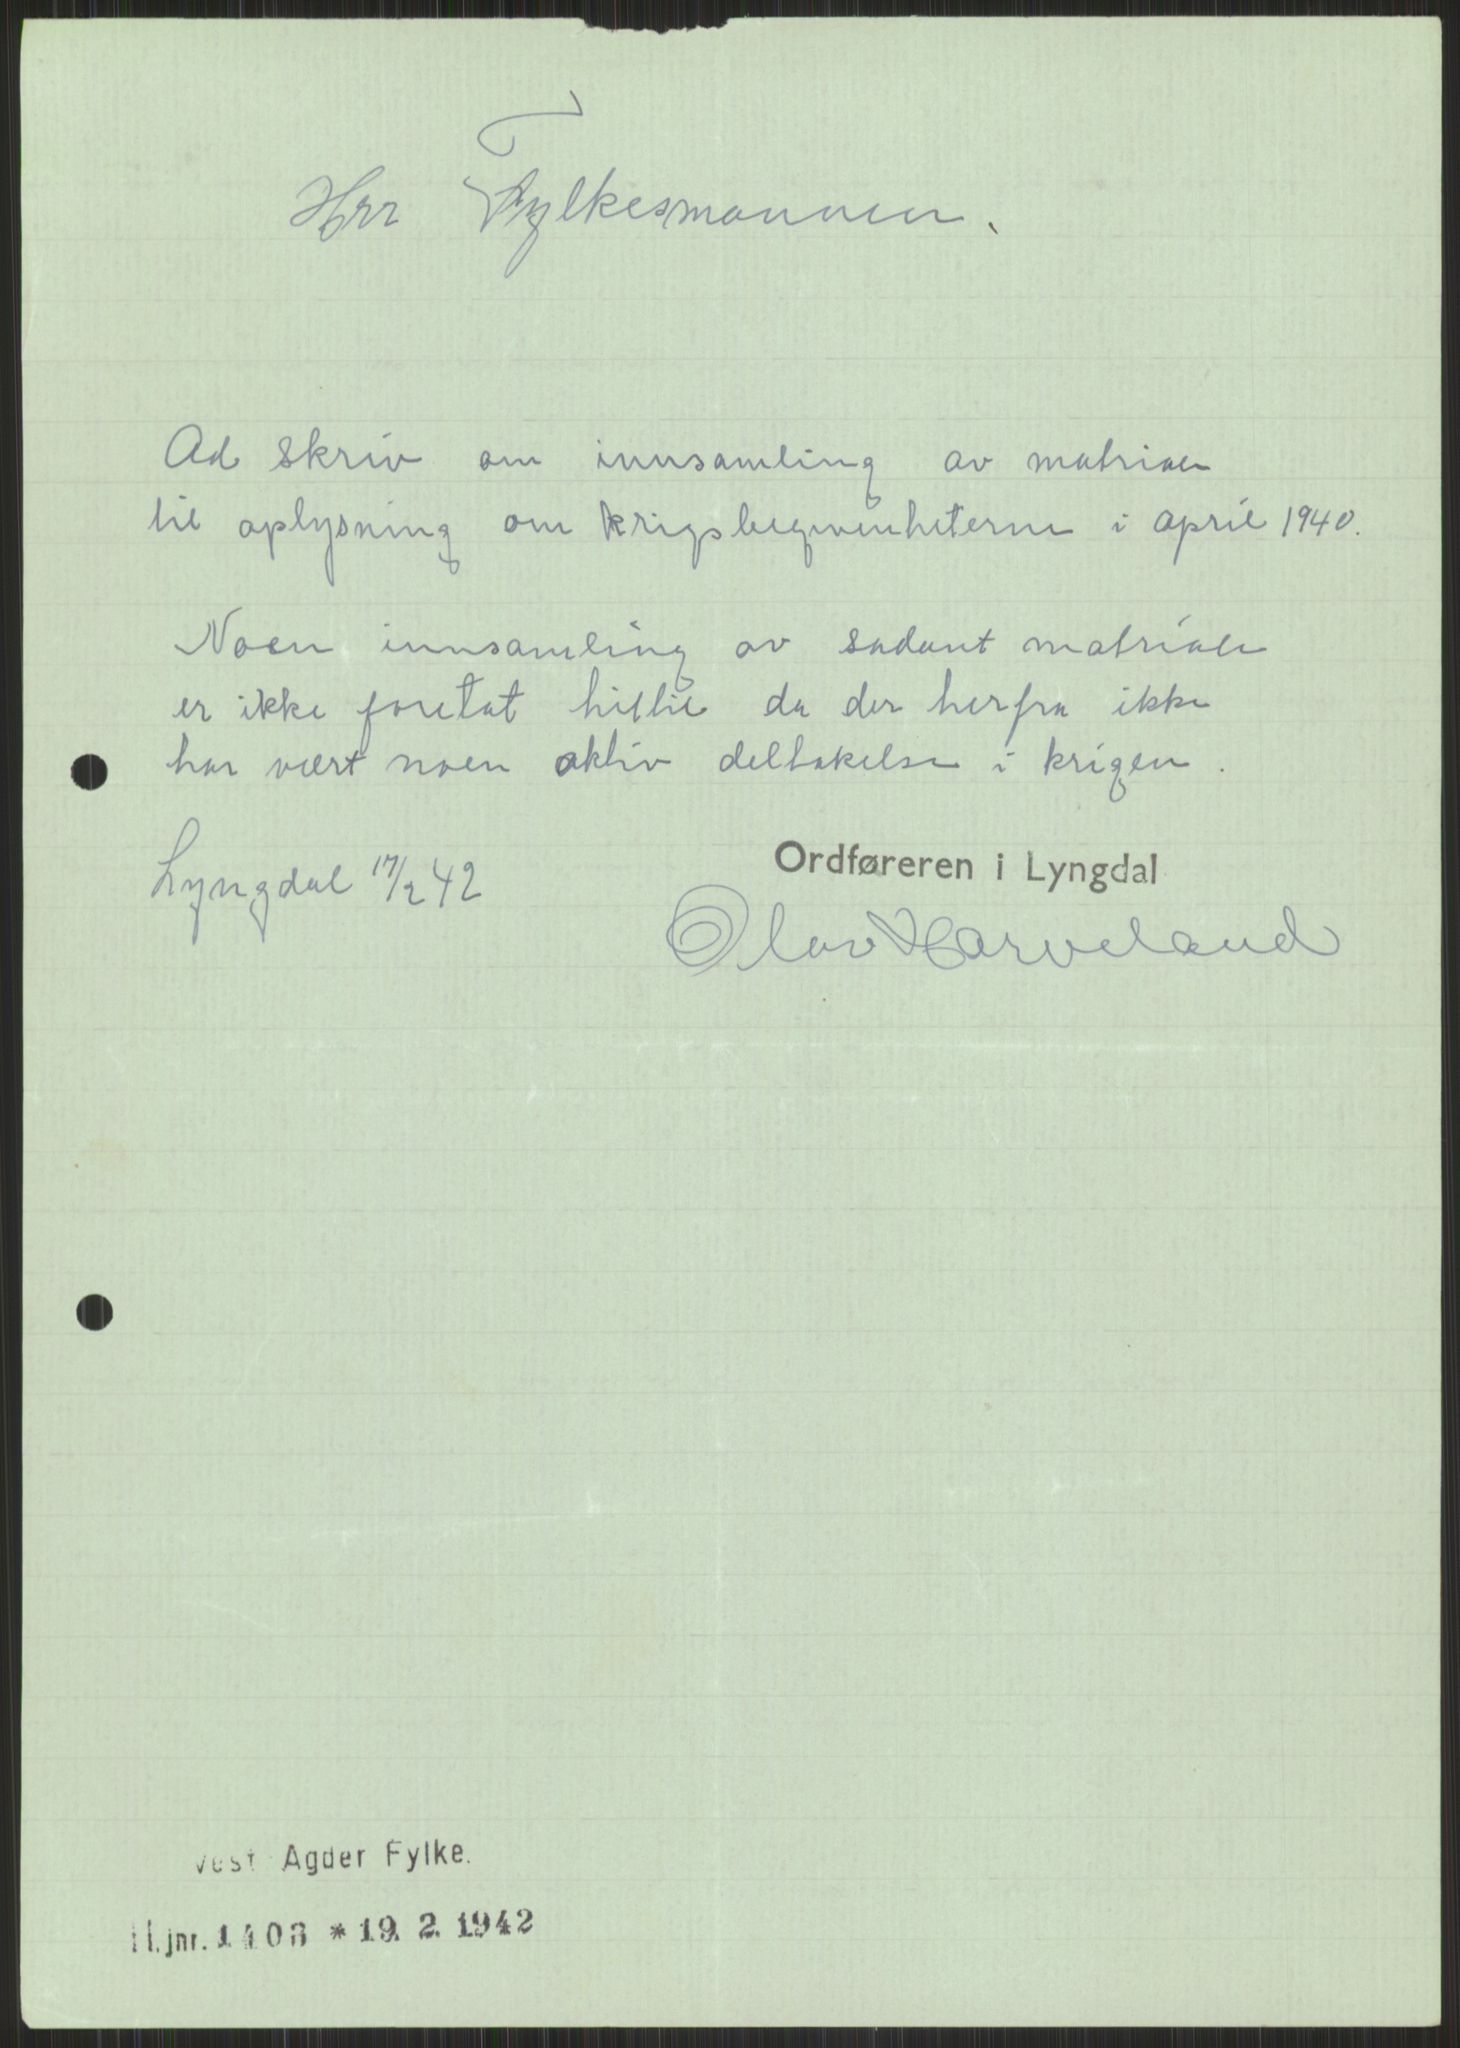 Herr Fylkesmannen.
Ad skriv om innsamling av matriale
til oplysning om krigsbegivenheterne i april 1940.
Noen innsamling av sadant matriale
er ikke foretat hittil da der herfra ikke
har vært noen aktiv deltakelse i krigen.
Lyngdal 17/2 42
Ordføreren i Lyngdal
Olav Harveland
Vest-Agder Fylke.
jnr. 1403 * 19. 2. 1942